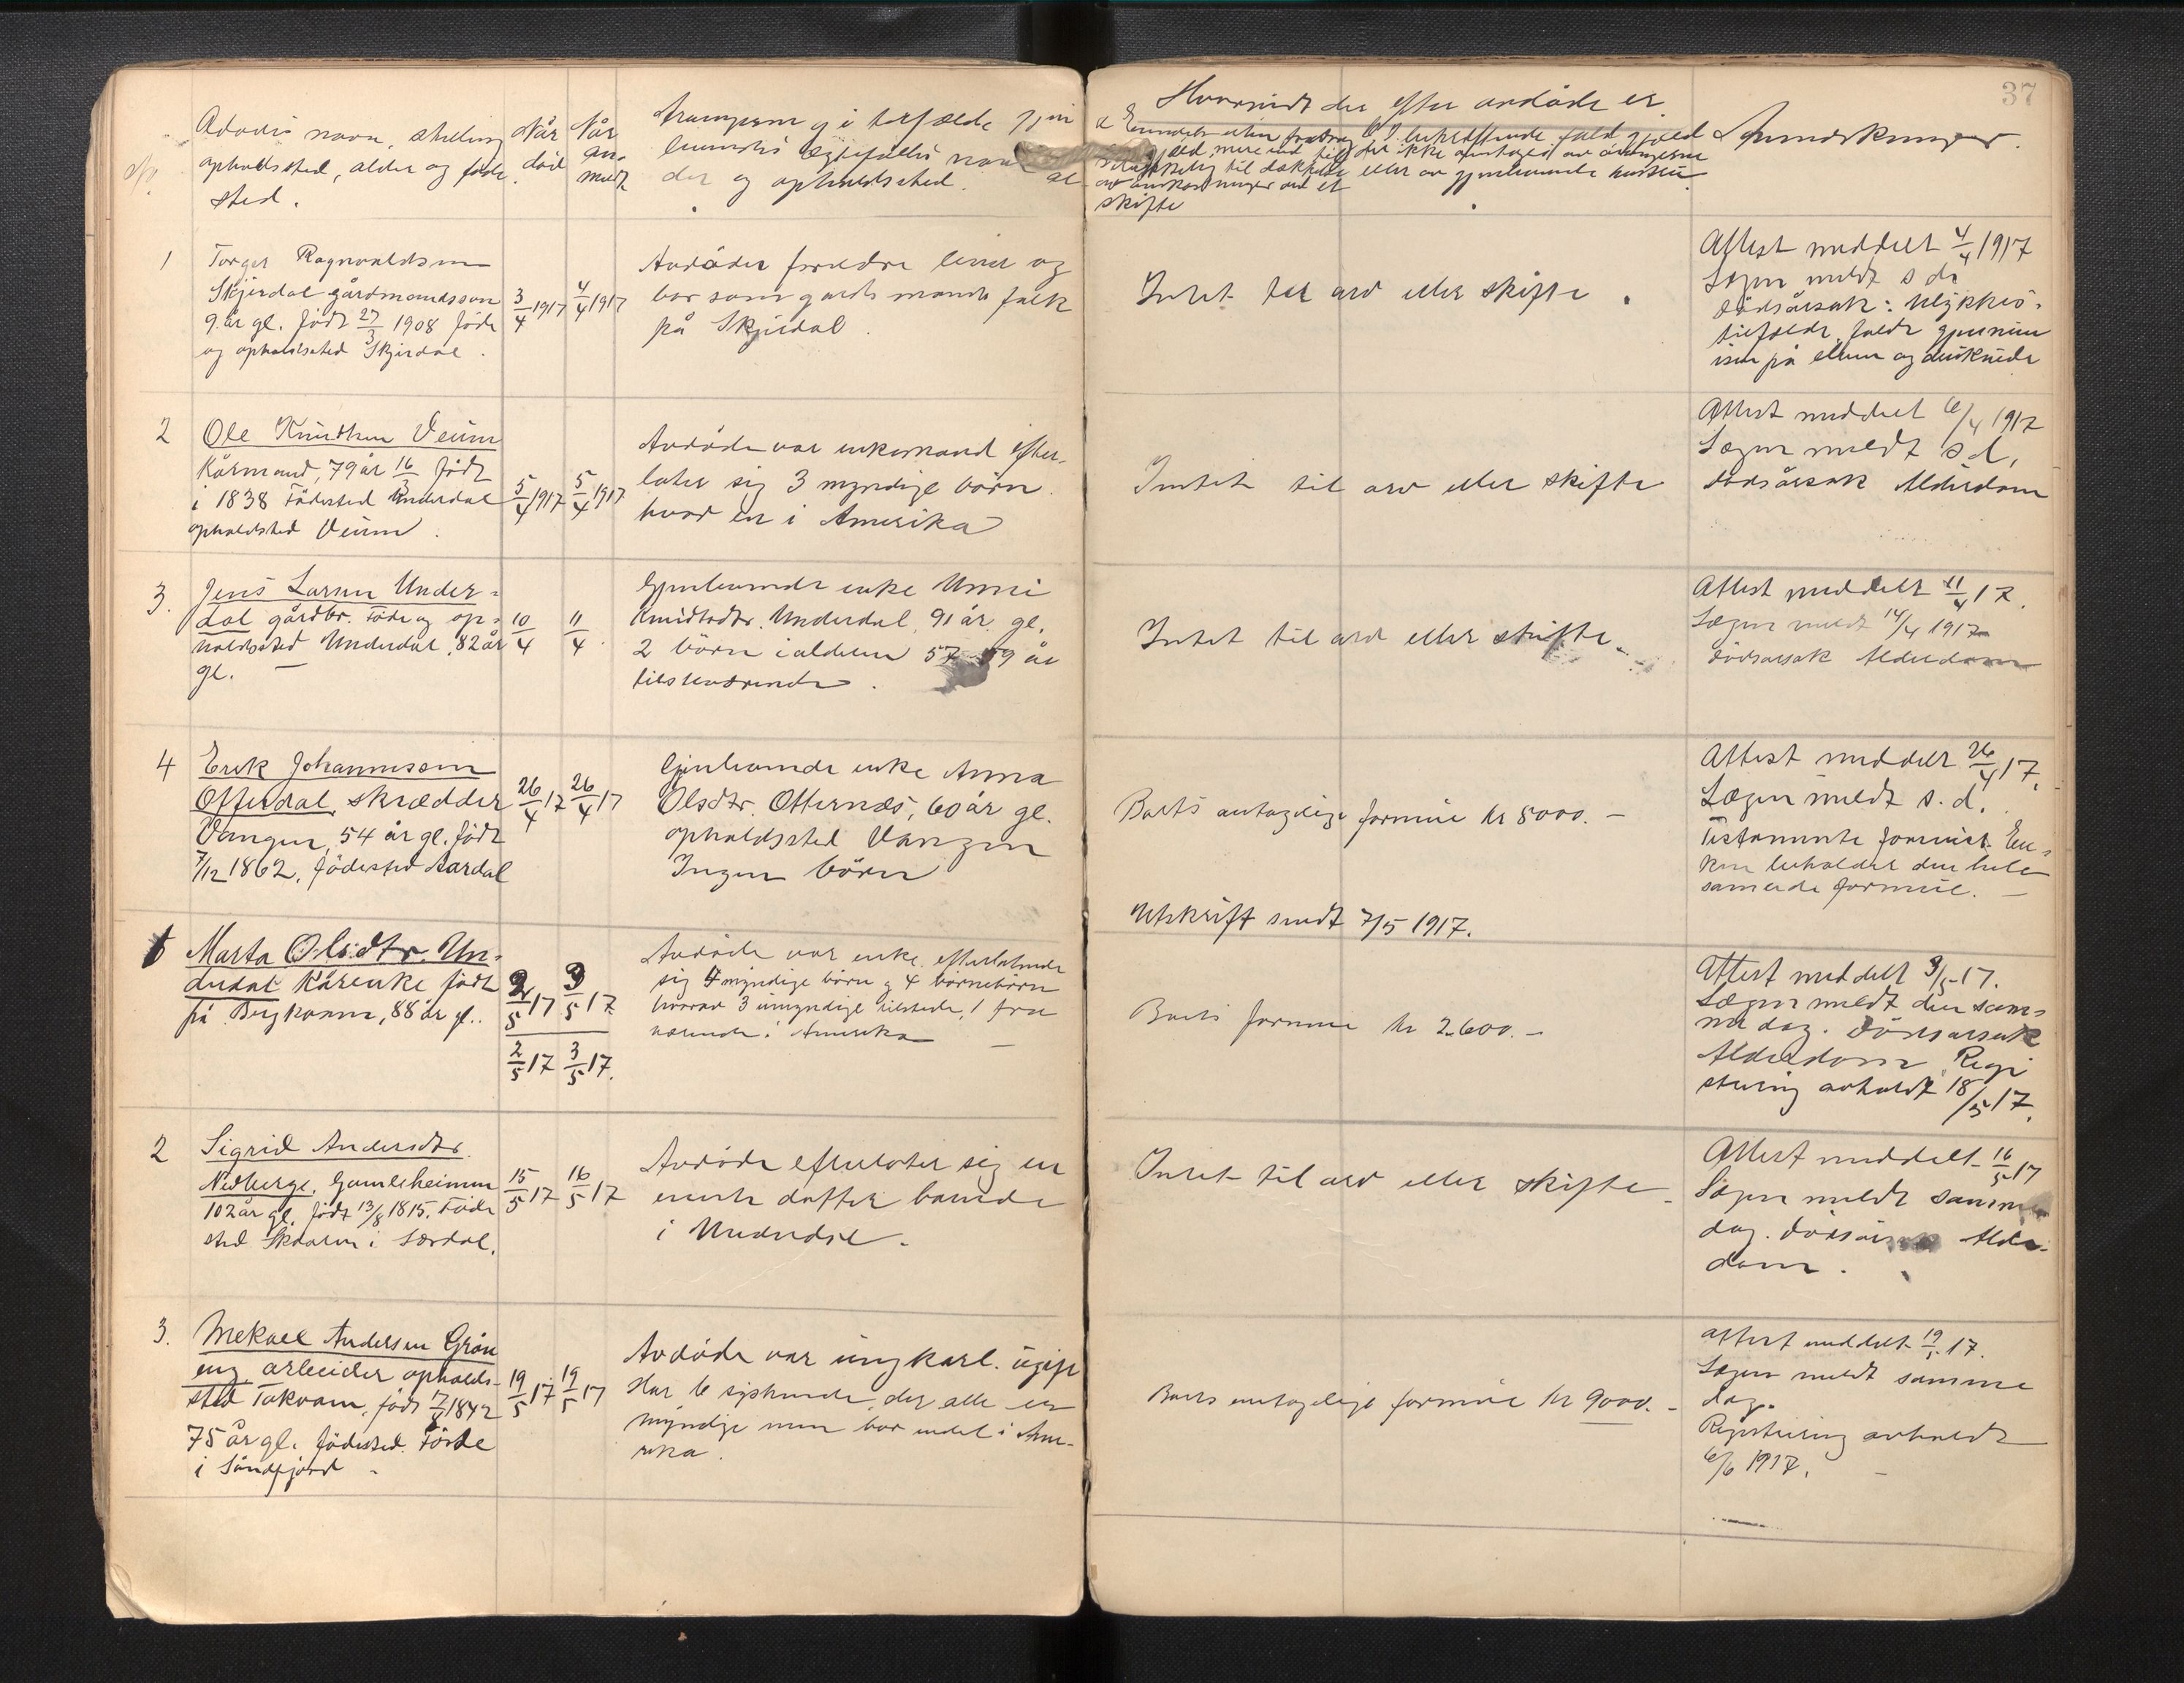 37
Nr.
Avdødes navn, stilling
opholdssted, alder og føde
sted.
Når
død
Når
an-
meldt
Arvingerne og i tilfælde gjen
levendes navn al
der og opholdssted.
Hvorvidt der efter avdøde er
skifte
Anmerkninger.
1
Torger Ragnvaldsen
Skjerdal gårdmandssøn
9 år gl. født 27/3 1908 føde
og opholdssted Skjerdal.
3/4 1917
4/4 1917
Avdødes foreldre lever og
bor som gards mands folk
på Skjerdal.
Intet til arv eller skifte.
Attest meddelt 4/4 1917
Lægen meldt s d.
dødsårsak: Ulykkes-
tilfælde, faldt gjennem
isen på elven og druknede
2
Ole Knudsen Veum
Kårmand, 79 år 16/3 født
i 1838 Fødested Underdal
opholdsted Veum.
5/4 1917
5/4 1917
Avdøde var enkemand efter-
later sig 3 myndige børn
hvor en i Amerika
Intet til arv eller skifte
Attest meddelt 6/4 1917
Lægen meldt s d.
dødsårsak Alderdom
3.
Jens Larsen Under-
dal gårdbr. Føde og op-
holdssted Underdal, 82 år
gl.
10/4
11/4
Gjenlevende enke Unni
Knudsdtr. Underdal, 91 år gl.
2 børn i alderen 57 59 år
tilstedeværende.
Intet til arv eller skifte.
Attest meddelt 11/4 17.
Lægen meldt 14/4 1917
dødsarsak Alderdom
4
Erik Johannessen
Offerdal, skrædder
Vangen, 54 år gl. født
7/12 1862, fødested Aardal
26/4 17
26/4 17
Gjenlevende enke Anna
Olsdtr. Otternæs, 60 år gl.
opholdssted Vangen
Ingen børn
Boets antagelige formue kr 5000.-
Utskrift sendt 7/5 1917.
Attest meddelt 26/4 17.
Lægen meldt s. d.
Testamente foreviist. En-
ken beholder den hele
samlede formue.
1
Marta Olsdtr. Un-
derdal Kårenke født
på Bergkvam, 88 år gl.
2/5 17
3/5 17
2/5 17
3/5 17.
Avdøde var enke, efterlatende
sig 4 myndige børn og 4 børnebørn
hvorav 3 umyndige tilstede, 1 fra
værende i Amerika
Boets formue kr 2.600.-
Attest meddelt 3/5 17.
Lægen meldt den sam-
me dag. Dødsarsak
Alderdom. Regi
strering avholdt 18/5 17.
2
Sigrid Andersdtr.
Nedberge, Gamleheimen
102 år gl. født 13/8 1815. Føde
sted i Lærdal.
15/5 17
16/5 17
Avdøde efterlater sig en
eneste datter boende
i Underdal.
Intet til arv eller skifte.
Attest meddelt 16/5 17
Lægen meldt samme
dag. dødsårsak Alder-
dom.
3.
Mekael Andersen Grön
eng, arbeider opholds-
sted Tokvam, født 1842
75 år gl. fødested. Førde
i Søndfjord
19/5 17
19/5 17
Avdøde var ungkarl. ugift
Har 6 søskende, der alle er
myndige men bor endel i Ame-
rika.
Boets antagelige formue kr 9000.-
Attest meddelt 19/5 17.
Lægen meldt samme
dag.
Registrering avholdt
6/6 1917.